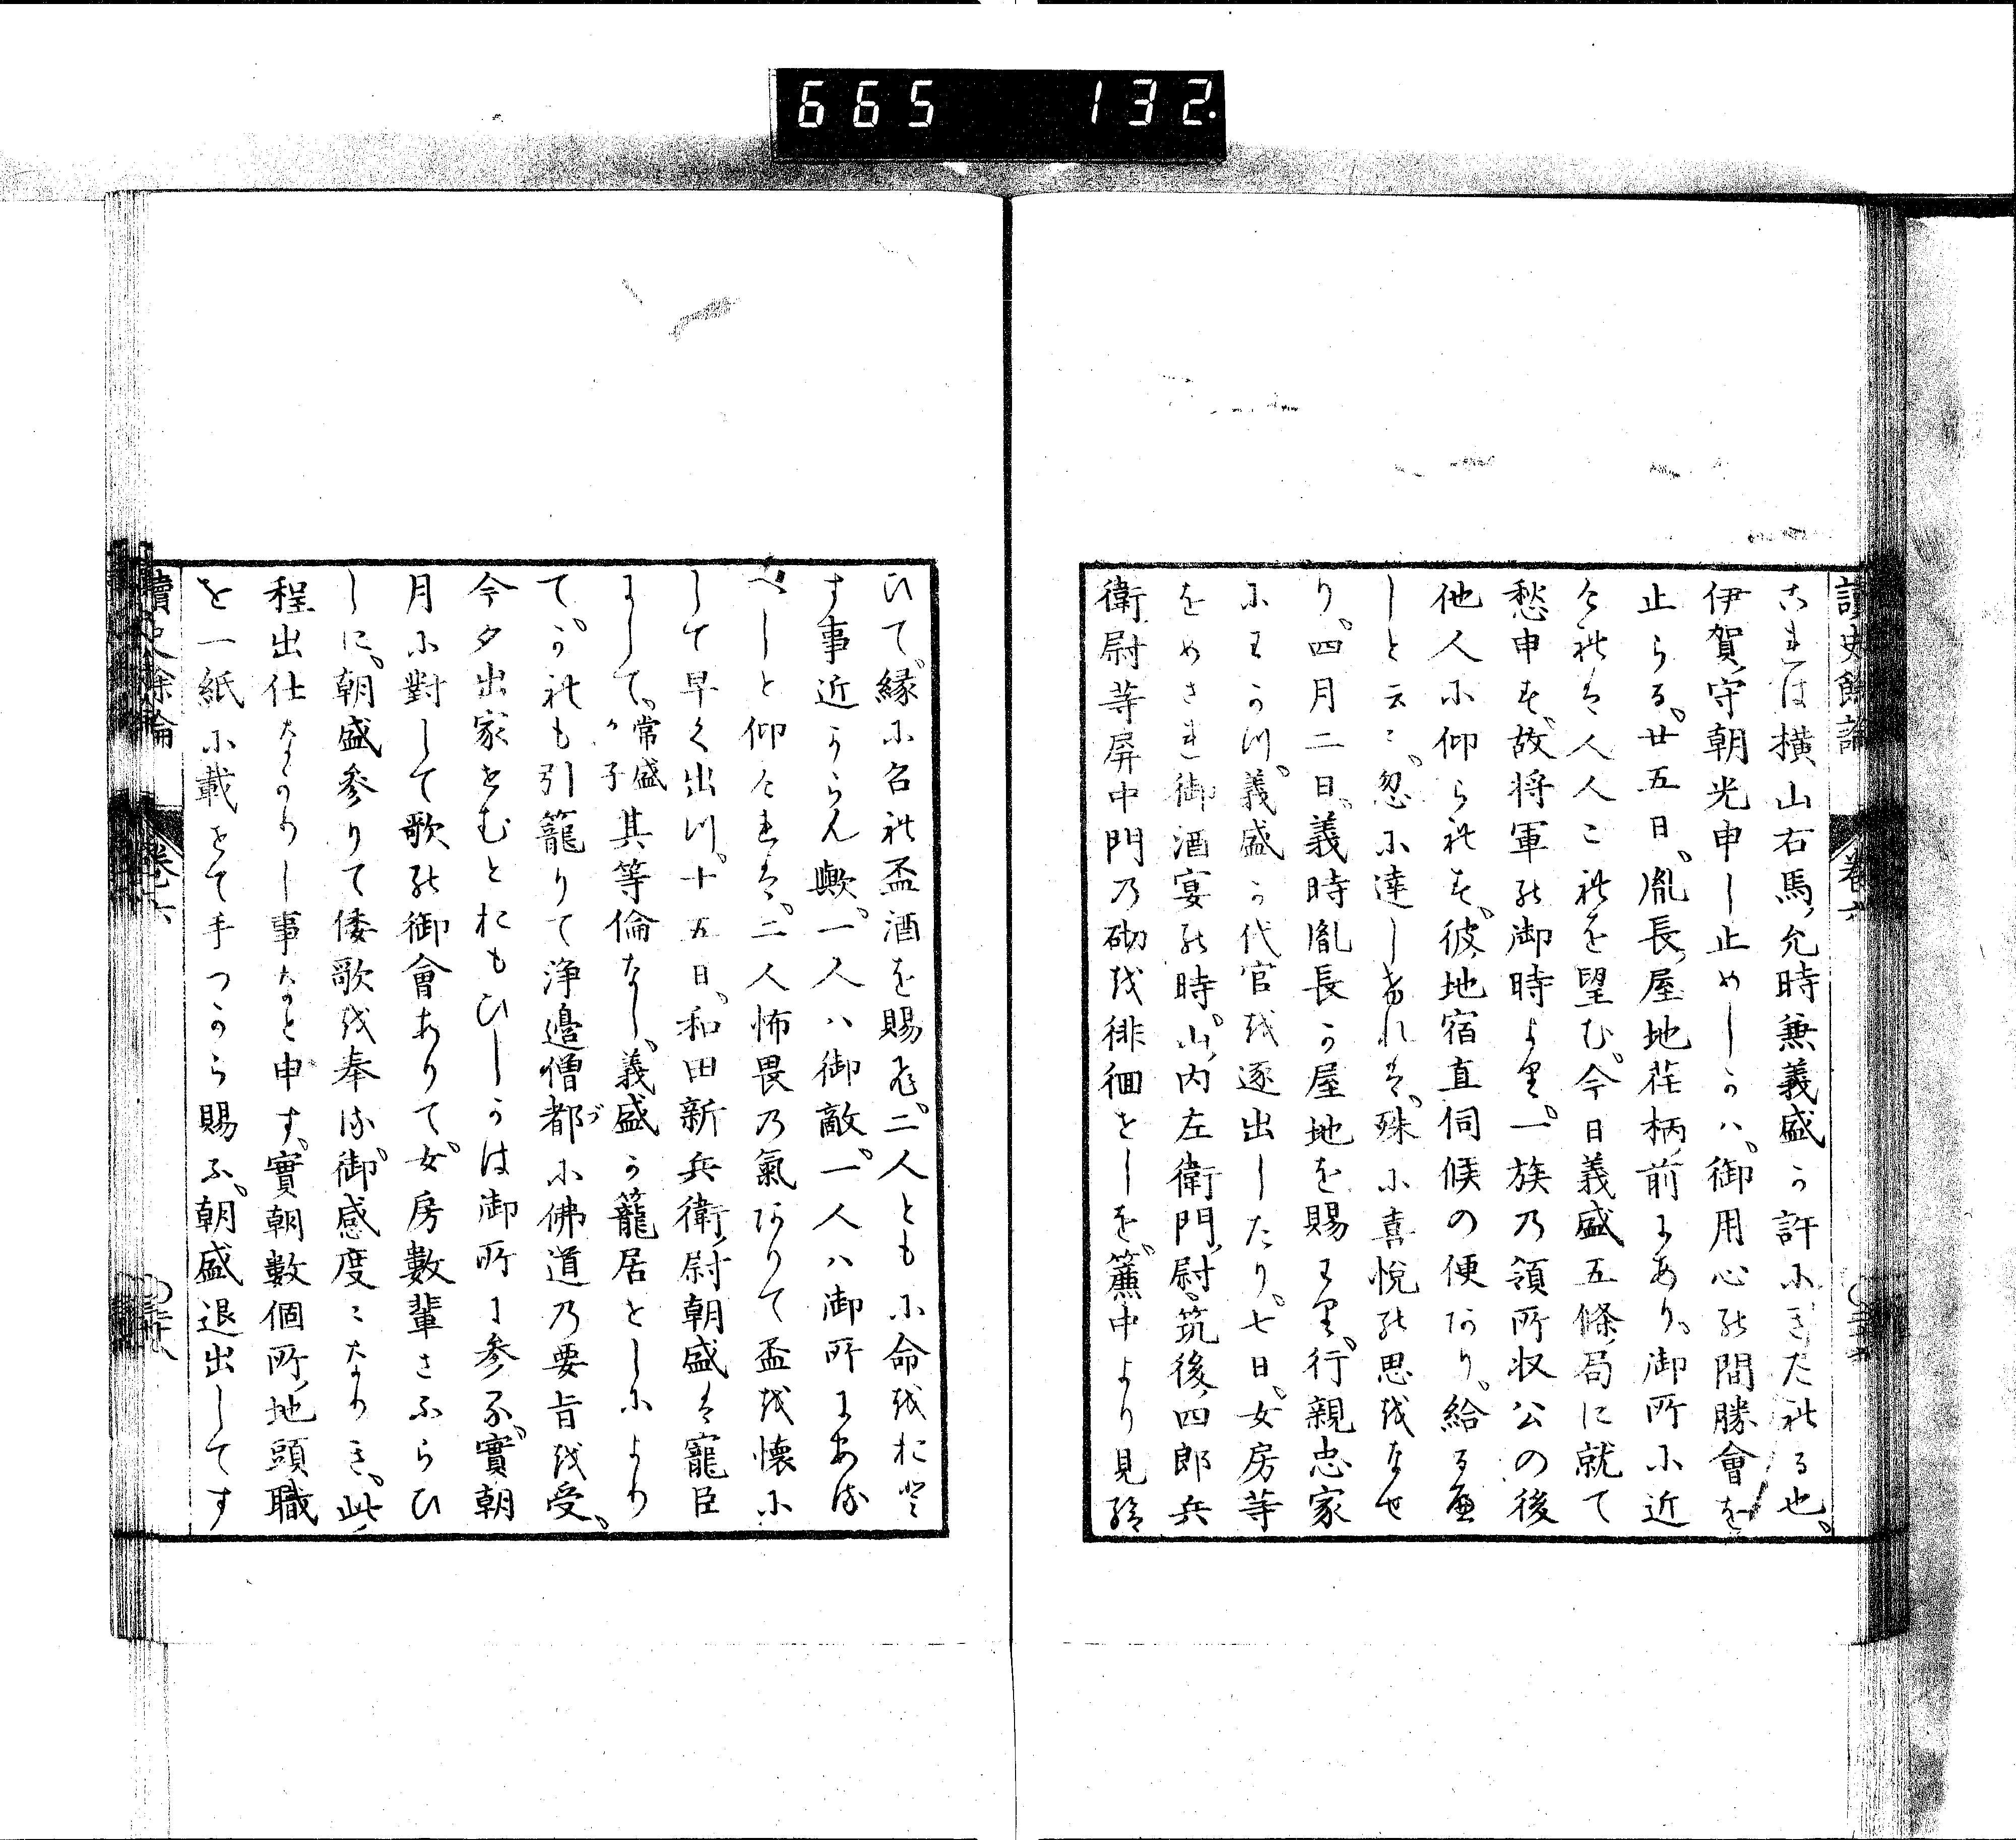 665 132
讀史餘論 卷六
これは横山右馬允時兼義盛か許にきたれる也。
伊賀守朝光申し止めしかハ。御用心の間勝會を
止らる。廿五日。胤長屋地荏柄前にあり。御所に近
けれは人人これを望む。今日義盛五條局に就て
愁申す。故将軍の御時より。一族の領所収公の後
他人に仰られす。彼地宿直伺候の便あり。給る
しと云々。忽に達しけれは。殊に喜悦の思をなせ
り。四月二日。義時胤長か屋地を賜はり。行親忠家
にわかつ。義盛か代官を逐出したり。七日。女房等
をめされ御酒宴の時。山内左衛門尉。筑後四郎兵
衛尉等屏中門の砌を徘徊せしを。簾中より見給
ひて。縁に召れ盃酒を賜ふ。二人ともに命をおと
す事近からん歟。一人ハ御敵。一人ハ御所にある
へしと仰けれは。二人怖畏の氣ありて盃を懐に
して早く出つ。十五日。和田新兵衛尉朝盛は寵臣
にして。常盛か子其等倫なし。義盛か籠居せしによ
りて。かれも引籠りて浄邊僧都に佛道の要旨を受。
今夕出家せむとおもひしかは御所に参る。實朝
月に對して歌の御會ありて。女房數輩さふらひ
しに。朝盛参りて倭歌を奉る。御感度々なりき。此
程出仕なかりし事なと申す。實朝數個所地頭職
を一紙に載せて手つから賜ふ。朝盛退出してす
讀史餘論 卷六